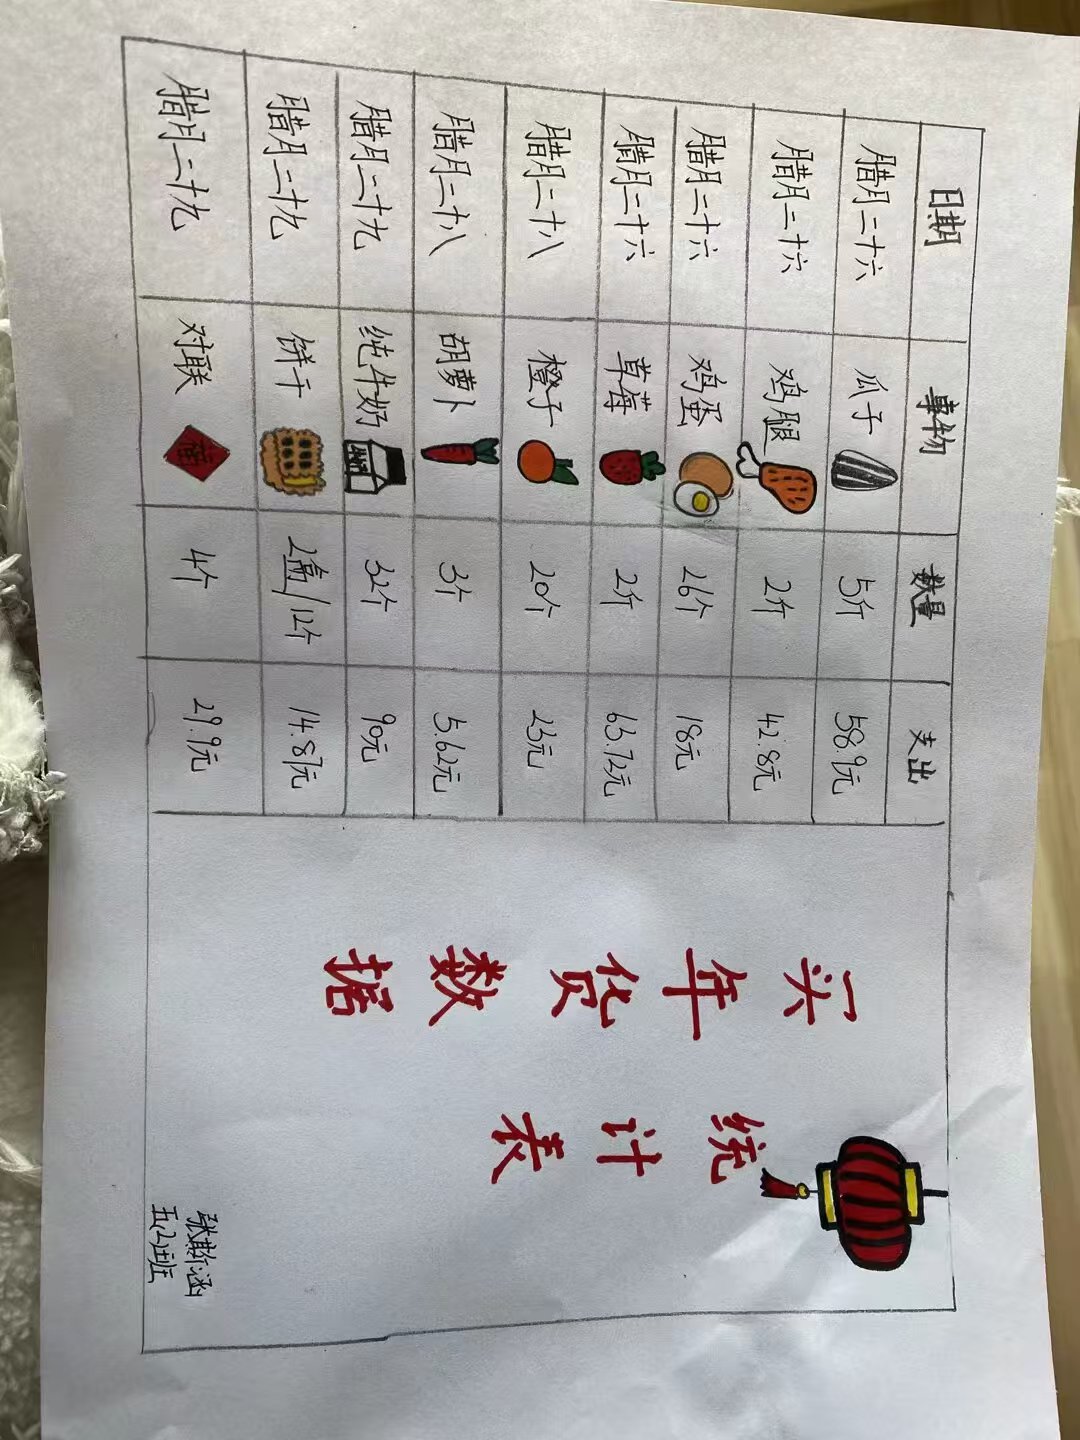 日期 事物 数量 支出
腊月二十六 瓜子 5斤 58.9元
腊月二十六 鸡腿 2斤 42.8元
腊月二十六 鸡蛋 26个 18元
腊月二十六 草莓 2斤 63.72元
腊月二十八 橙子 20个 23元
腊月二十八 胡萝卜 3个 5.62元
腊月二十九 纯牛奶 32个 90元
腊月二十九 饼干 2盒/12个 14.8元
腊月二十九 对联 4个 29.9元
买年货数据
统计表
张斯涵
五(2)班